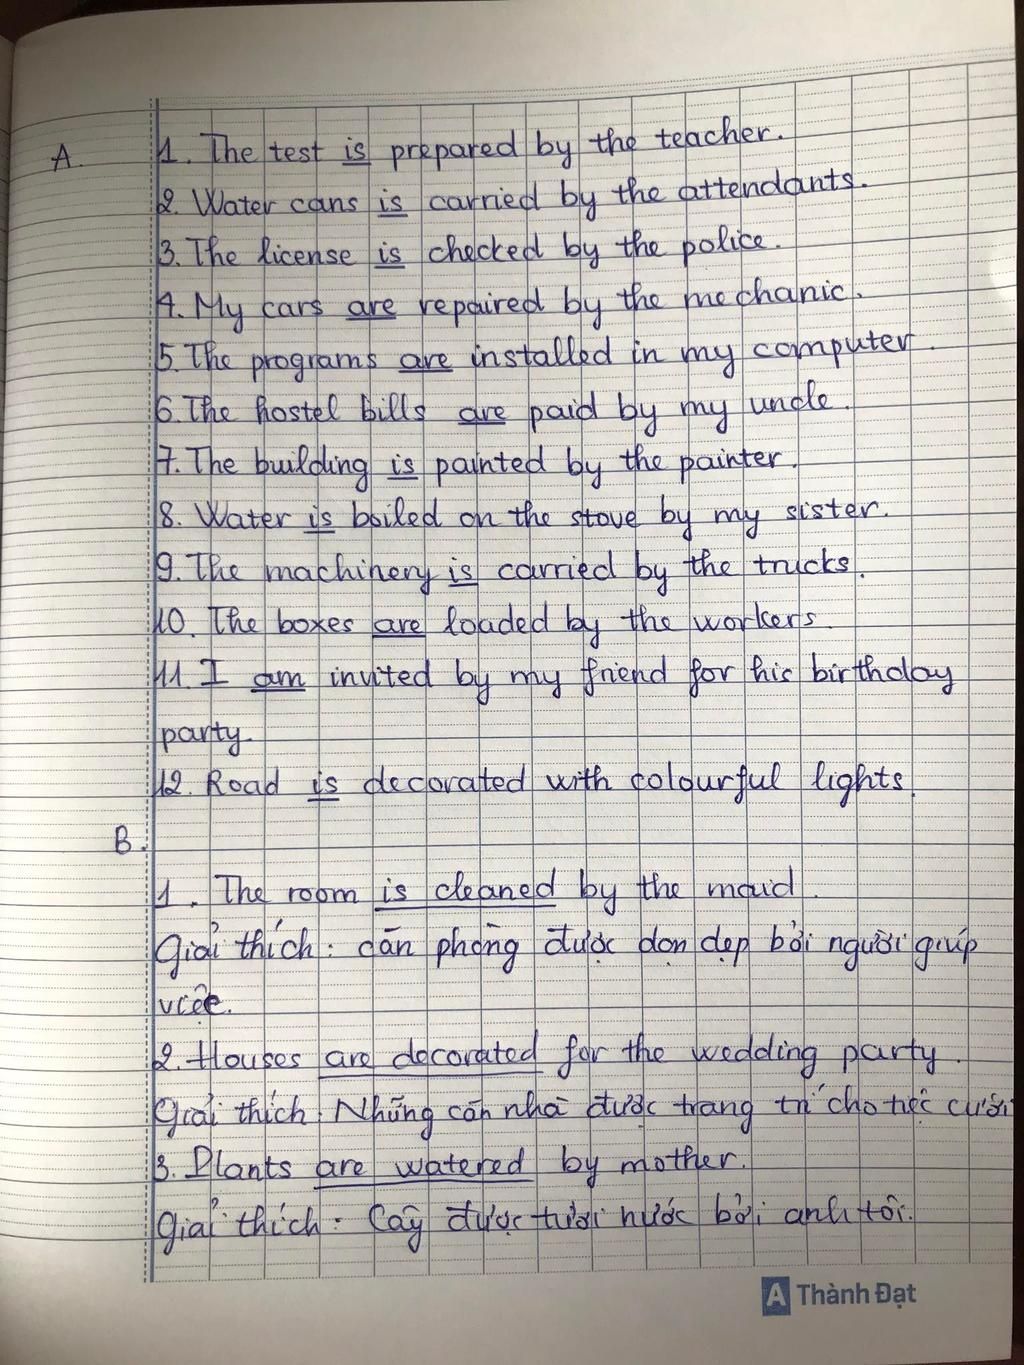 A. 1. The test is prepared by the teacher.
2. Water cans is carried by the attendants.
3. The license is checked by the police.
4. My cars are repaired by the mechanic.
5. The programs are installed in my computer.
6. The hostel bills are paid by my uncle.
7. The building is painted by the painter.
8. Water is boiled on the stove by my sister.
9. The machinery is carried by the trucks.
10. The boxes are loaded by the workers.
11. I am invited by my friend for his birthday
party.
12. Road is decorated with colourful lights.
B.
1. The room is cleaned by the maid.
Giải thích: căn phòng được dọn dẹp bởi người giúp
việc.
2. Houses are decorated for the wedding party.
Giải thích: Những căn nhà được trang trí cho tiệc cưới
3. Plants are watered by mother.
Giải thích: Cây được tưới nước bởi anh tôi.
A Thành Đạt